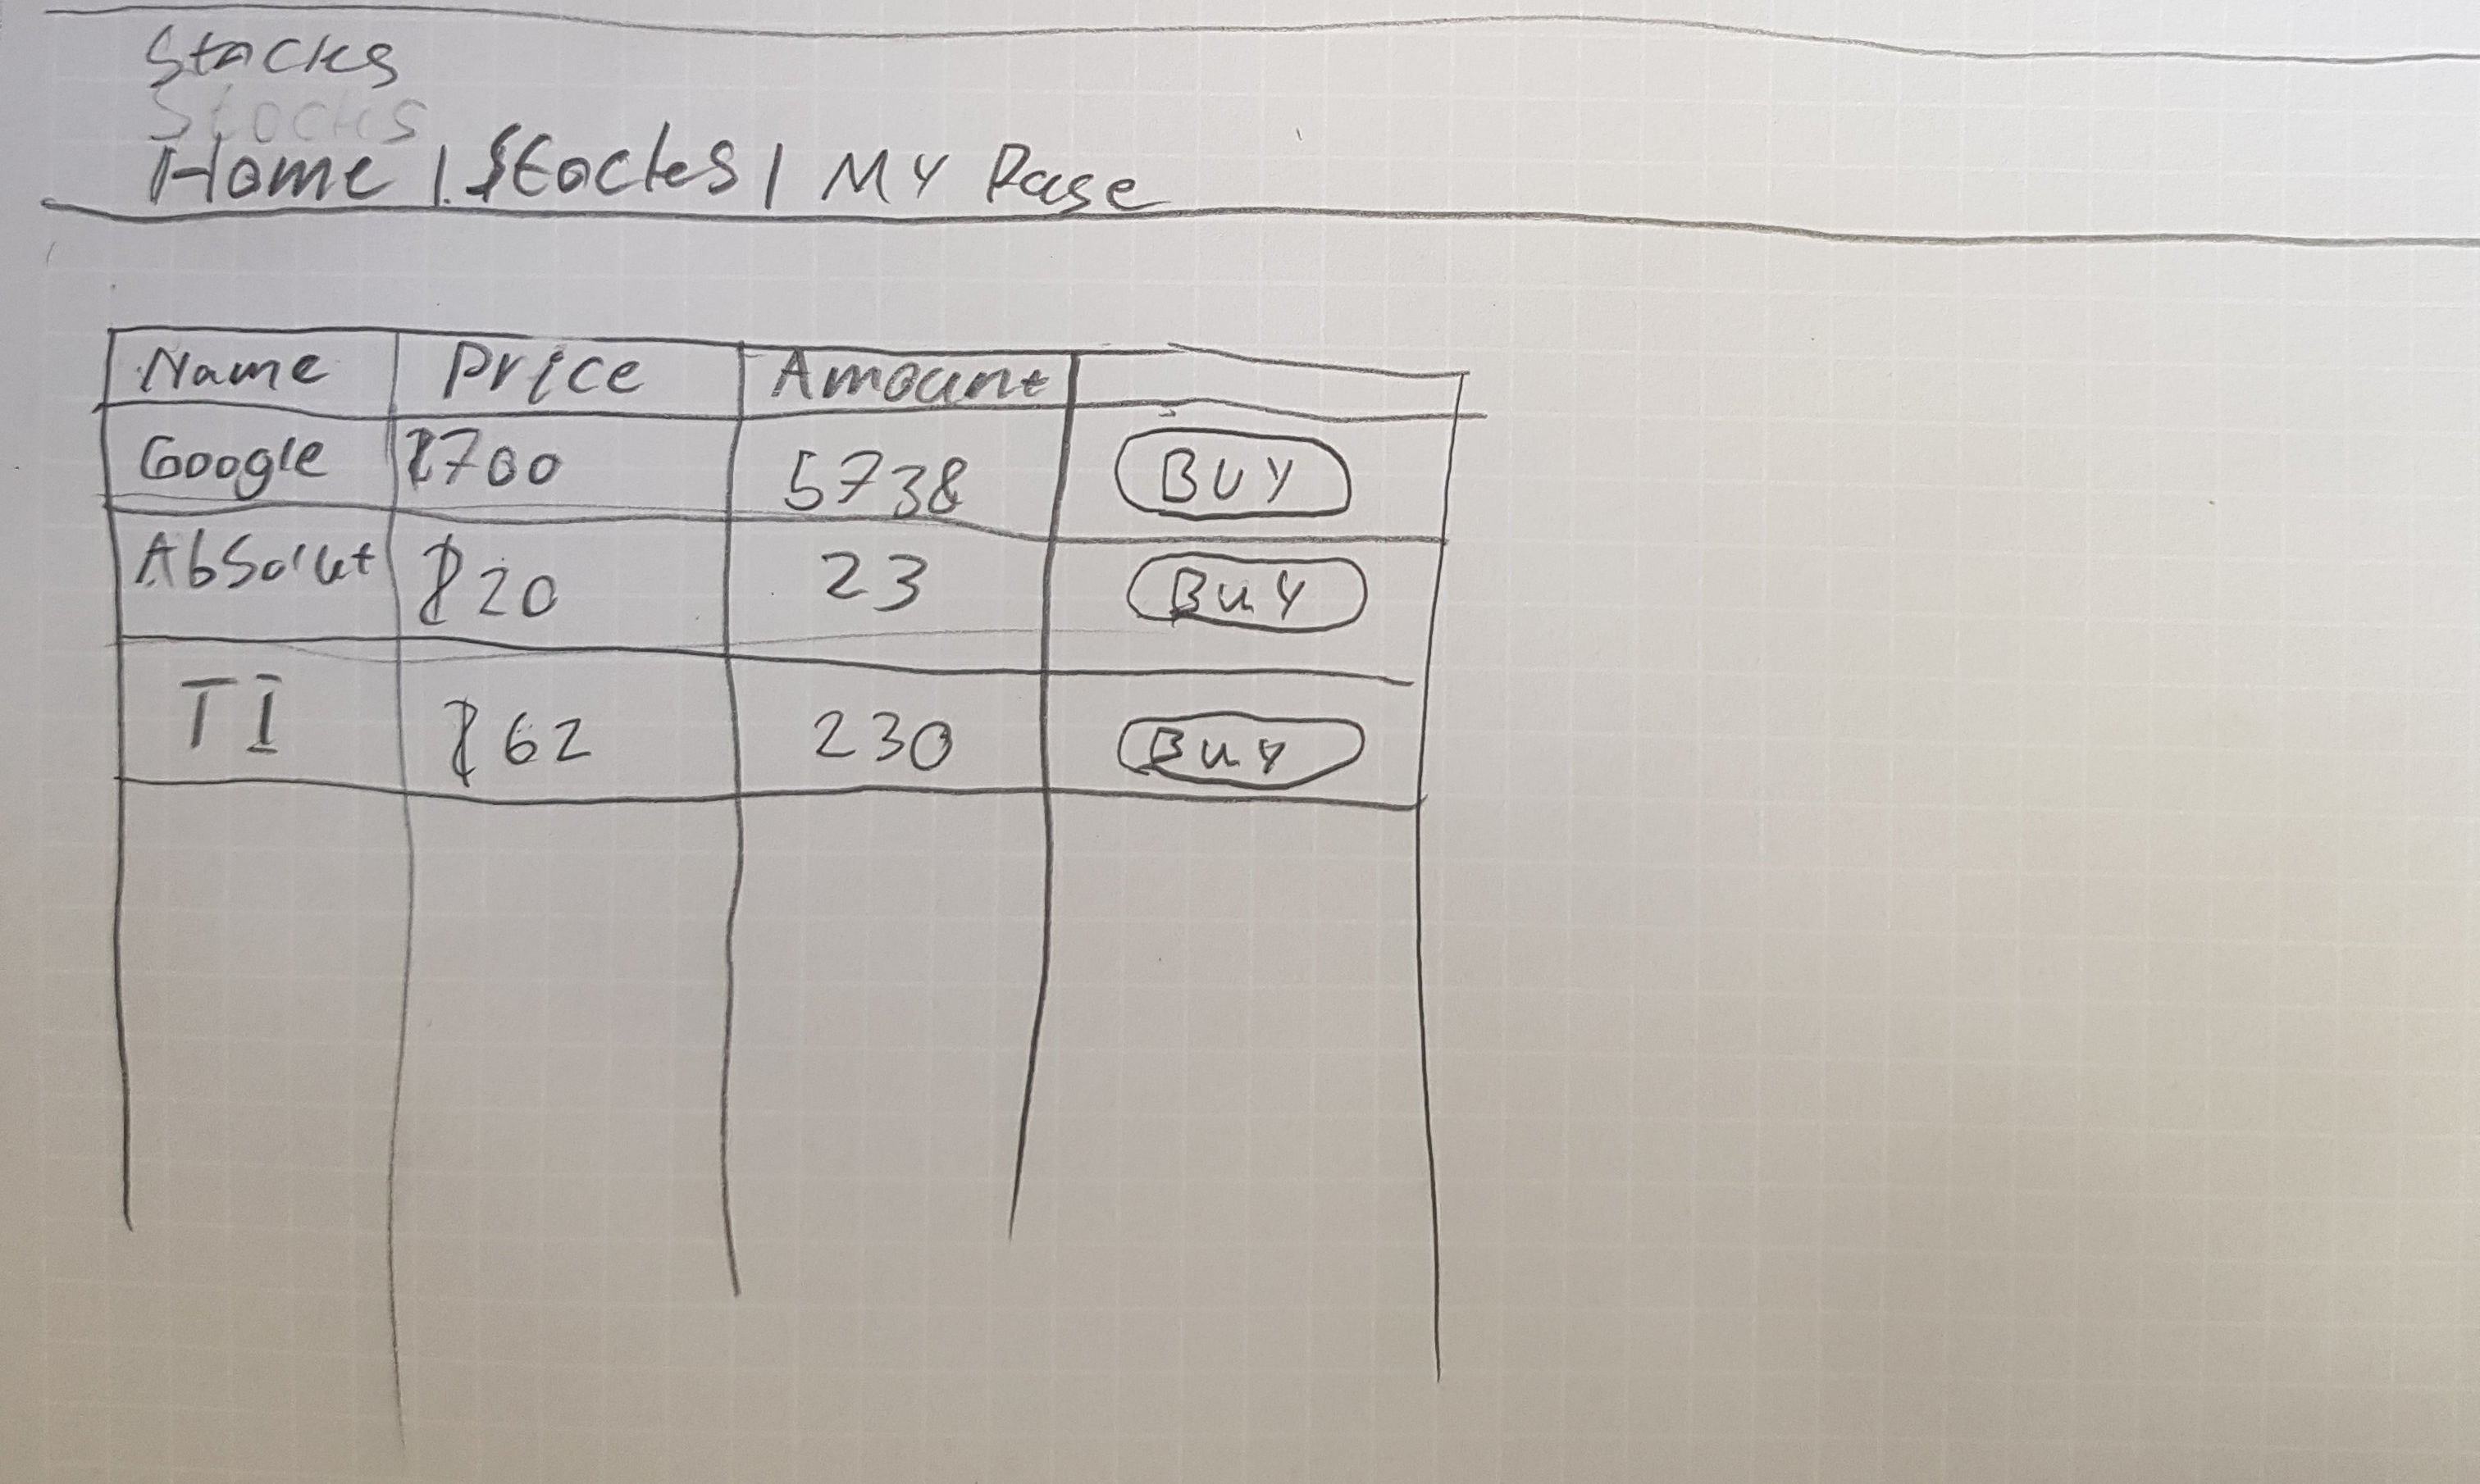 Stocks
Stocks
Home | Stocks | My Page
Name Price Amount
Google $700 5738 BUY
Absolut $20 23 BUY
TI $62 230 BUY